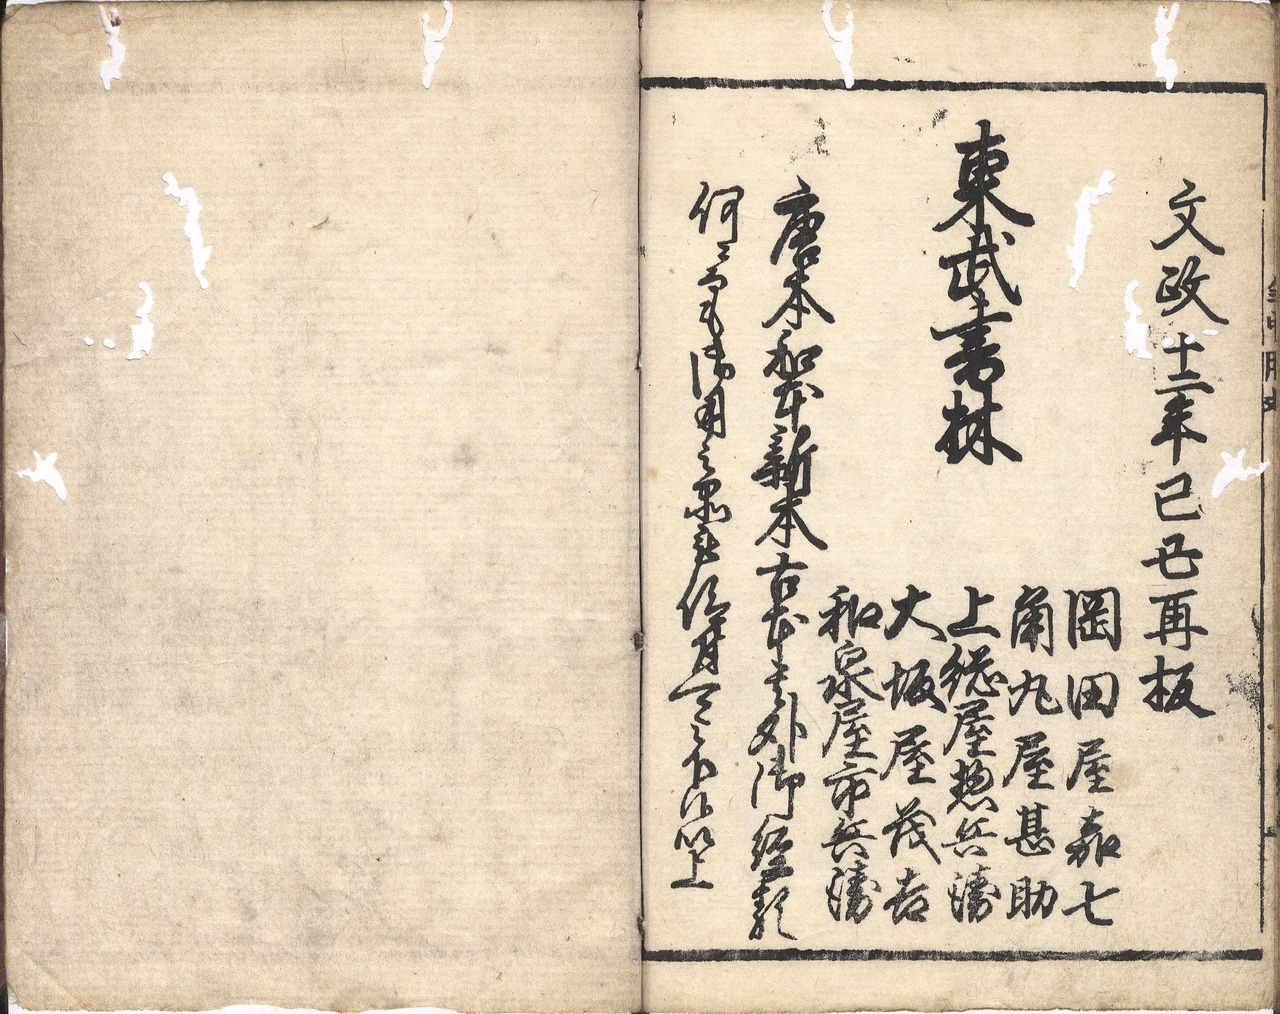 文政十二年己丑再板
東武書林
岡田屋嘉七
角丸屋甚助
上総屋惣兵衛
大坂屋茂吉
和泉屋市兵衛
唐本和本新本古本其外御経類
何ニ而も御用之品無御座下以上